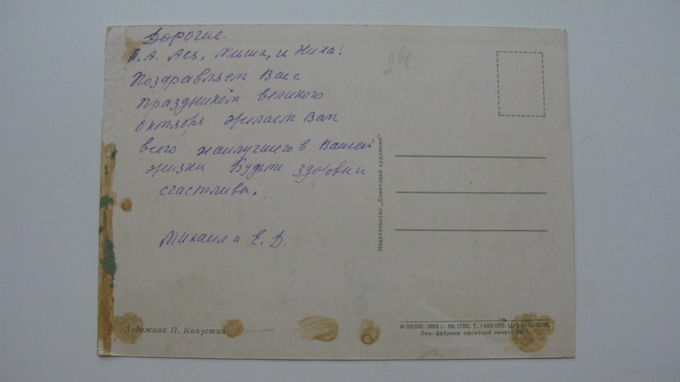 Дорогие.
Т. А. Ася, Миша, и Нила!
Поздравляем Вас
праздником великого
октября желаем Вам
всего наилучшего в Вашей
жизни Будьте здоровы и
счастливы.
Михаил и Е. В.
Художник П. Капустин
Издательство „Советский художник"
1964 г.
Лен. фабрика офсетной печати